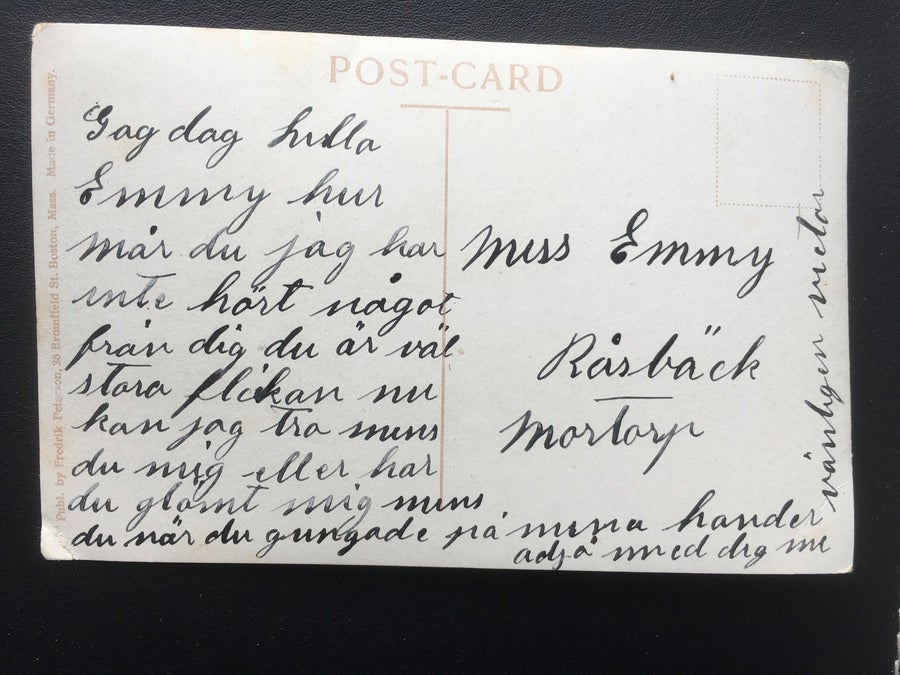 POST-CARD
Publ. by Fredrik Peterson, 36 Bromfield St. Boston, Mass. Made in Germany.
Gag dag lilla
Emmy hur
mår du jag har
inte hört något
från dig du är väl
stora flickan nu
kan jag tro mins
du mig eller har
du glömt mig mins
du när du gungade på mina hander
adjö med dig nu
vänligen victor
Miss Emmy
Råsbäck
Mortorp